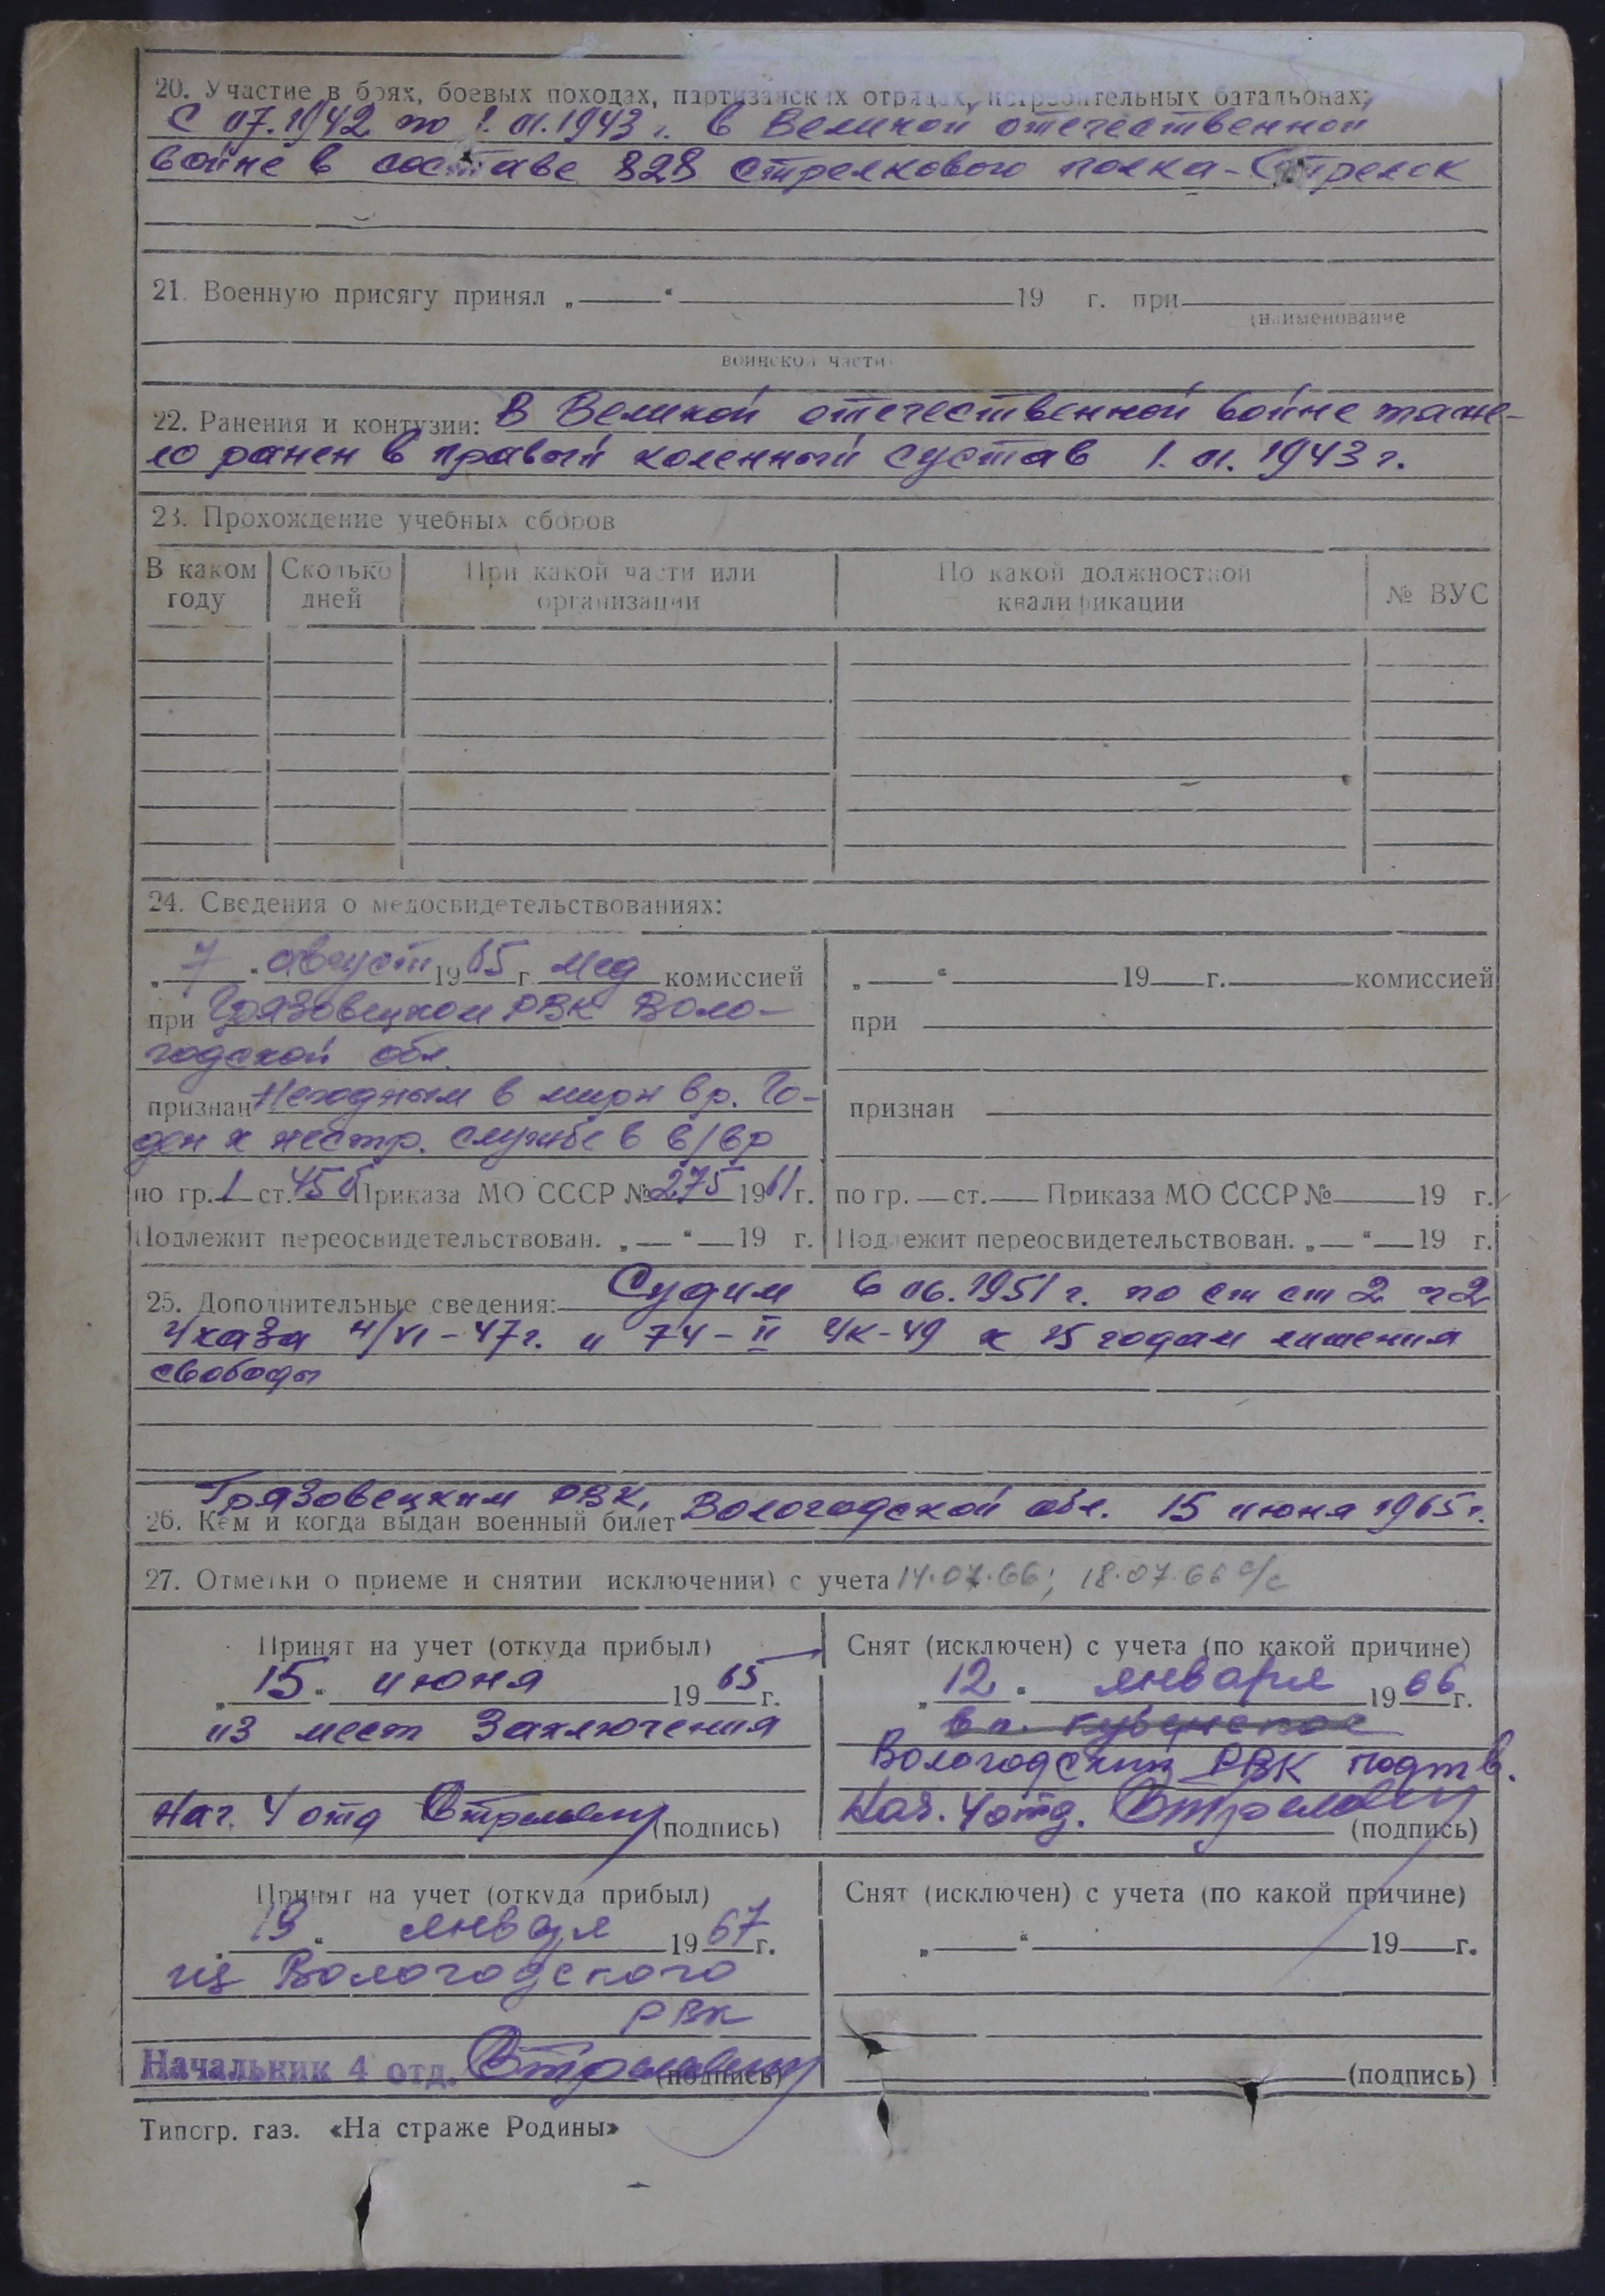 20. Участие в боях, боевых походах, партизанских отрядах, истребительных батальонах:
С 07.1942 по 1.01.1943 г. в Великой отечественной
войне в составе 828 стрелкового полка - Стрелок
21. Военную присягу принял „ “ 19 г. при
(наименование
воинской части
22. Ранения и контузии: В Великой отечественной войне тяже-
ло ранен в правый коленный сустав 1.01.1943 г.
23. Прохождение учебных сборов
В каком году Сколько дней При какой части или организации По какой должностной квалификации № ВУС
24. Сведения о медосвидетельствованиях:
„7“ август 1965 г. мед комиссией
при Грязовецком РВК Воло-
годской обл.
признан Негодным в мирн вр. Го-
ден к нестр. службе в в/вр
по гр. 1 ст. 45б Приказа МО СССР № 275 1961 г.
Подлежит переосвидетельствован. „ “ 19 г.
„ “ 19 г. комиссией
при
признан
по гр. ст. Приказа МО СССР № 19 г.
Подлежит переосвидетельствован. „ “ 19 г.
25. Дополнительные сведения: Судим 6 06.1951 г. по ст ст 2 ч 2
Указа 4/VI-47 г. и 74-II УК-49 к 15 годам лишения
свободы
Грязовецким РВК,
26. Кем и когда выдан военный билет Вологодской обл. 15 июня 1965 г.
27. Отметки о приеме и снятии исключении) с учета 14.07.66; 18.07.66
Принят на учет (откуда прибыл)
„15“ июня 1965 г.
из мест Заключения
Нач. 4 отд (подпись)
Снят (исключен) с учета (по какой причине)
„12“ января 1966 г.
в п. Кубенское
Вологодский РВК подтв.
Нач. 4 отд. (подпись)
Принят на учет (откуда прибыл)
„19“ января 1967 г.
из Вологодского
РВК
Начальник 4 отд. (подпись)
Снят (исключен) с учета (по какой причине)
„ “ 19 г.
(подпись)
Типогр. газ. «На страже Родины»